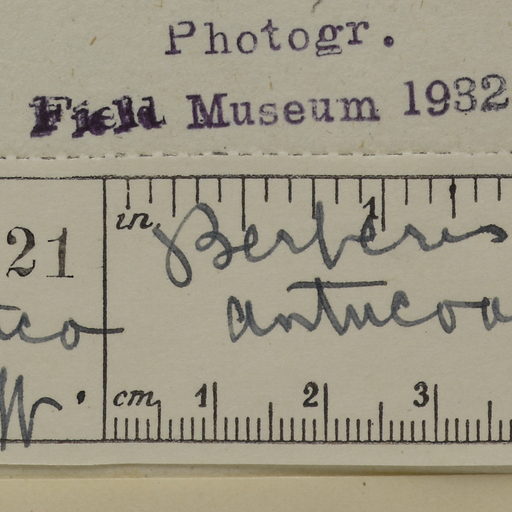 Photogr.
Field Museum 1932
in. 1
21 Berberis
antucoa
cm 1 2 3